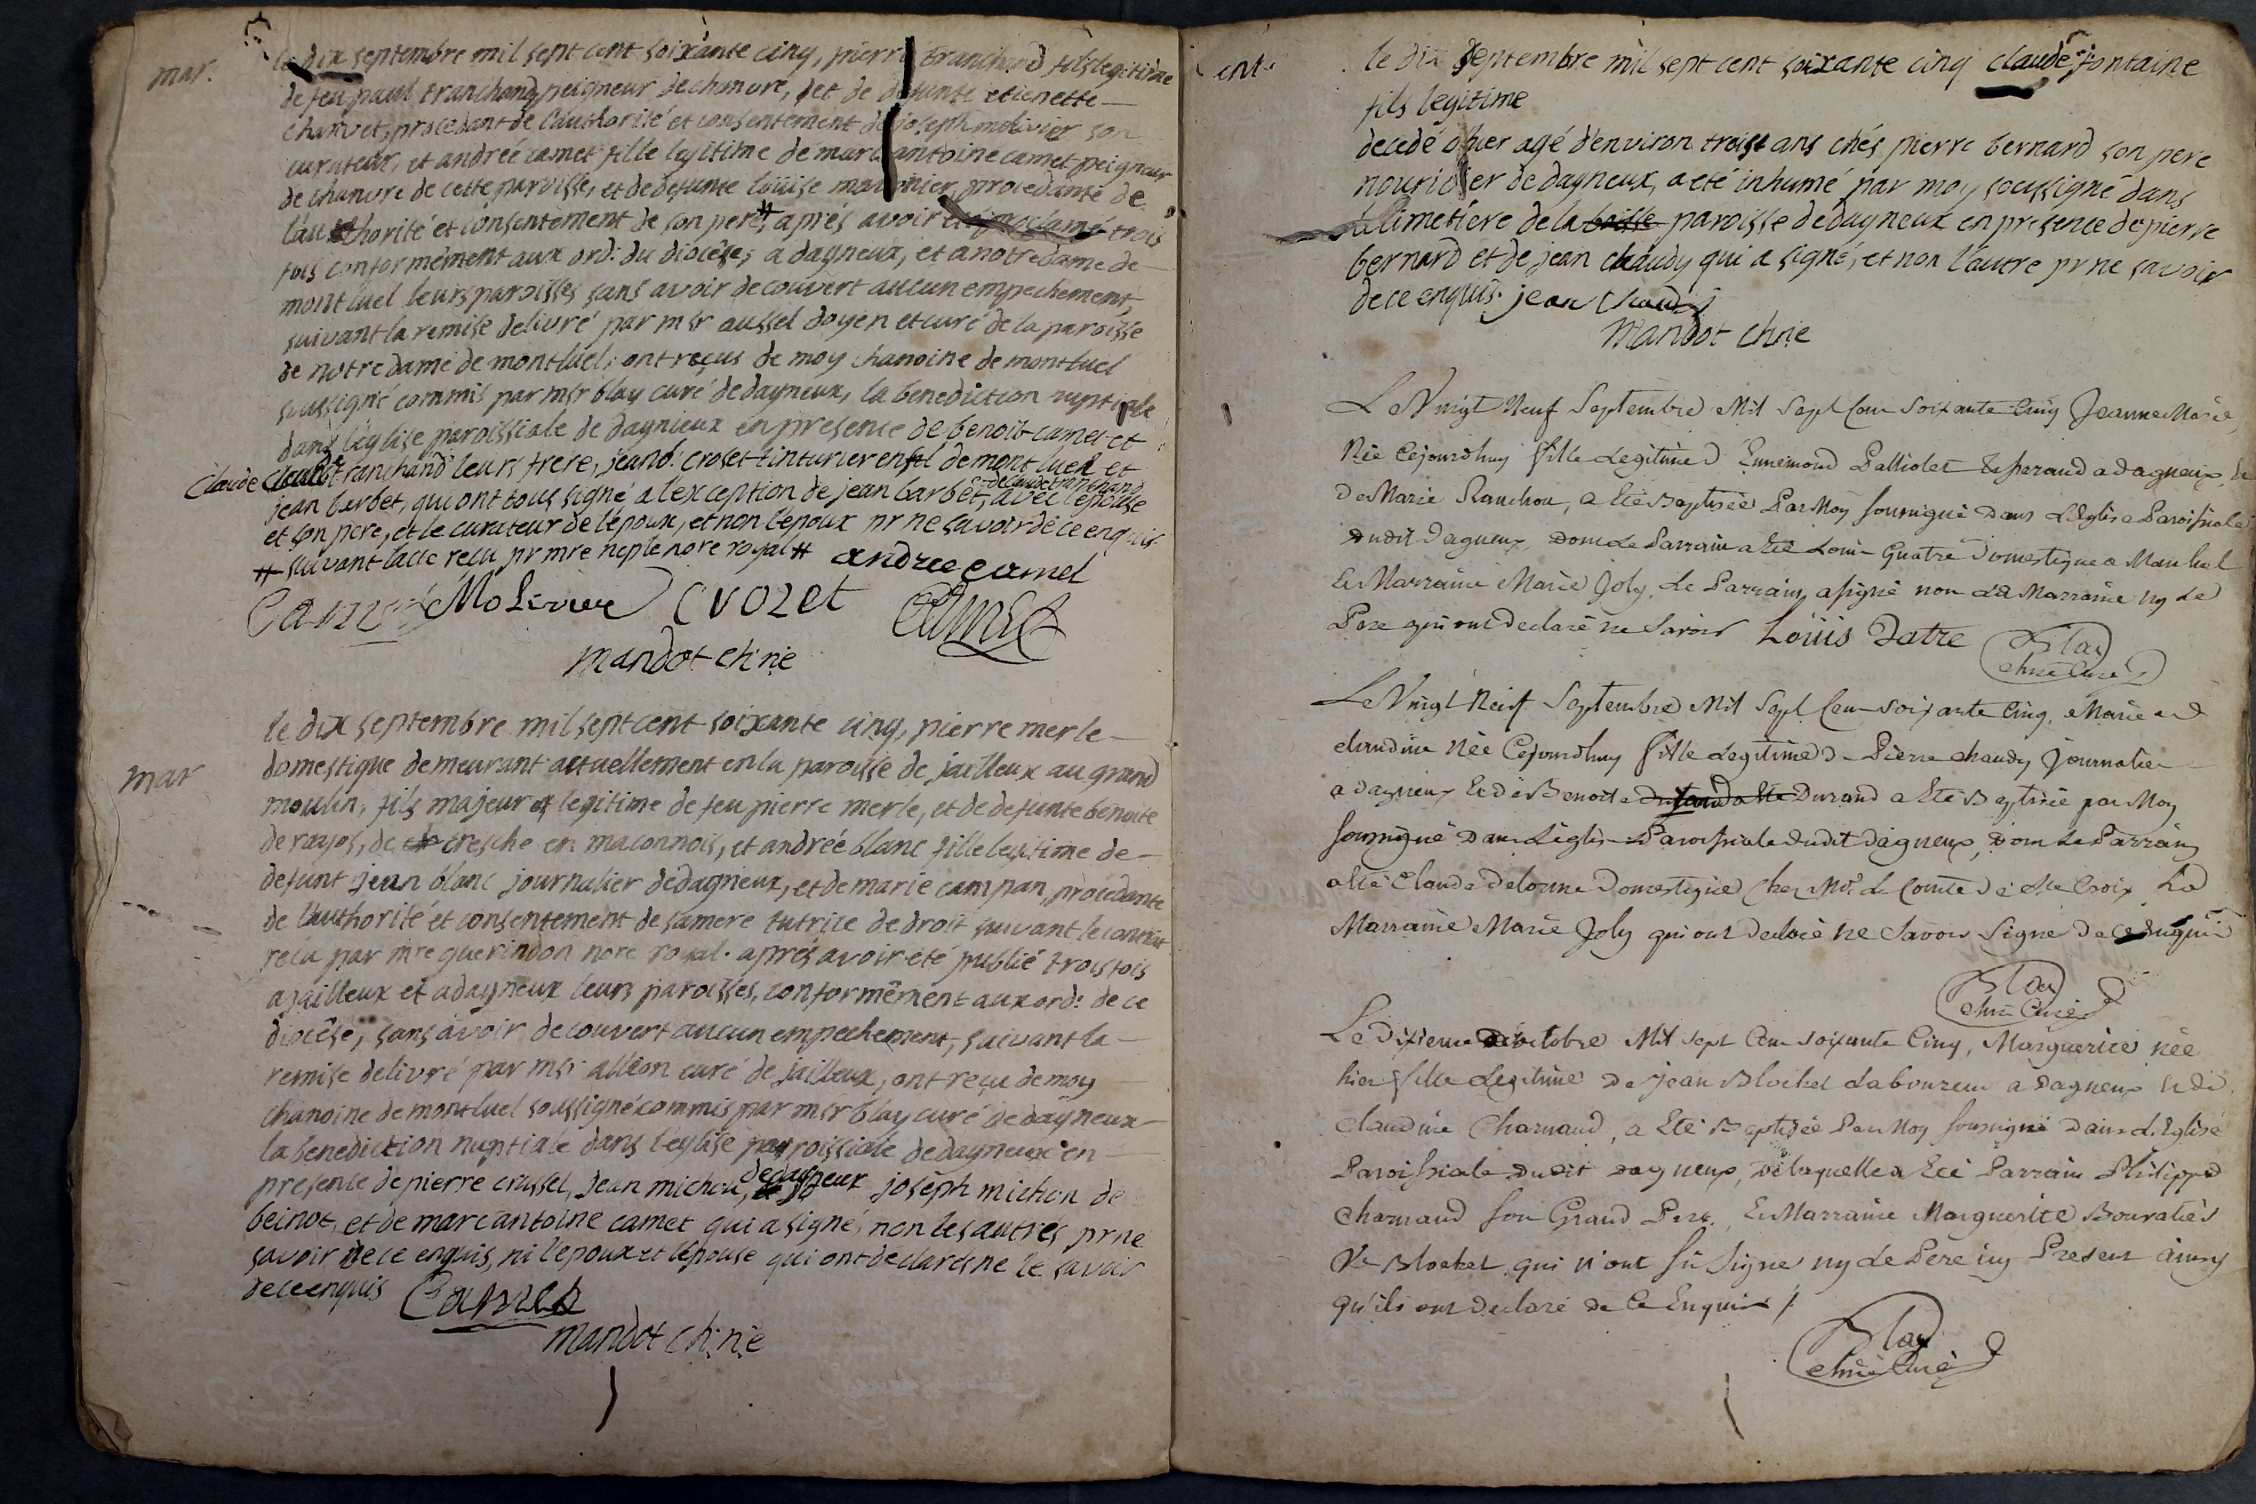 mar.
le dix septembre mil sept cent soixante cinq, pierre tranchand fils legitime
de feu paul tranchand peigneur de chanvre, et de defunte etienette
chanvet, procedant de l'authorité et consentement de joseph molivier son
curateur, et andrée camet fille legitime de marc antoine camet peigneur
de chanvre de cette paroisse, et de defunte loüise procedante de
l'authorité et consentement de son pere # aprés avoir eté proclamé trois
fois conformément aux ord: du diocêse, a dagneux, et a notre dame de
montluel leurs paroisses sans avoir decouvert aucun empechement,
suivant la remise delivré par msr aussel doyen et curé de la paroisse
de notre dame de montluel; ont reçus de moy chanoine de montluel
soussigné commis par msr blay curé de dagneux, la benediction nuptiale
dans l'église paroissiale de dagneux en presence de benoit camet et
Claude tranchand leurs frere, jean b: croset tinturier de montluel et
jean barbet, qui ont tous signé a l'exception de jean barbet, de claude tranchand avec l'epouse
et son pere, et le curateur de l'époux, et non l'epoux pr ne savoir de ce enquis
# suivant l'acte recu pr mre neple nore royal # andree camet
Camet Molivier Crozet Camet
mandot chne
mar
le dix septembre mil sept cent soixante cinq, pierre merle
domestique demeurant actuellement en la paroisse de jailleux au grand
moulin, fils majeur et legitime de feu pierre merle, et de defunte benoite
de rayos, de cresche en maconnois, et andrée blanc fille legitime de
defunt jean blanc journalier de dagneux, et de marie campan, procedante
de l'authorité et consentement de sa mere tutrice de droit suivant le contrat
recu par mre guerindon nore royal. aprés avoir été publié trois fois
a jailleux et a dagneux leurs paroisses, conformément aux ord: de ce
diocêse, sans avoir decouvert aucun empechement, suivant la
remise delivré par msr alléon curé de jailleux, ont reçu de moy
chanoine de montluel soussigné commis par msr blay curé de dagneux
la benediction nuptiale dans l'eglise paroissiale de dagneux en
presence de pierre crussel, jean michon, de dagneux joseph michon de
beinot, et de marc antoine camet qui a signé, non les autres pr ne
savoir de ce enquis, ni l'epoux et l'epouse qui ont declarés ne le savoir
de ce enquis Camet
mandot chne
ent.
le dix septembre mil sept cent soixante cinq claude fontaine
fils legitime
decedé hier agé d'environ trois ans chés pierre bernard son pere
nouricier de dagneux, a eté inhumé par moy soussigné dans
le cimetiere de la paroisse de dagneux en presence de pierre
bernard et de jean chaudy qui a signé, et non l'autre pr ne savoir
de ce enquis. jean chaudy
mandot chne
Le Vingt Neuf Septembre Mil Sept Cent Soixante Cinq Jeanne Marie,
Née Cejourdhuy fille Legitime d'Ennemond Palliolet a dagneux, Et
de Marie Ranchon, a Eté Baptisée Par Moy soussigné dans L'Eglise Paroissiale
dudit dagneux, dont Le Parrain a Eté Louis Quatre domestique a Montluel
Et Marraine Marie Joly, Le Parrain a signé non La Marraine ny Le
Pere qui ont declaré ne Savoir Loüis Datre Blay
chne Curé
Le Vingt Neuf Septembre Mil Sept Cent Soixante Cinq, Marie
claudine Née Cejourdhuy fille Legitime de Pierre chaudy Journalier
a dagneux Et de Benoite Durand a Eté Baptisée par Moy
soussigné dans L'église Paroissiale dudit dagneux, dont Le Parrain
a Eté Claude delorme domestique chez Mr Le Comte de Ste Croix La
Marraine Marie Joly qui ont declaré ne Savoir Signer de ce enquis
Blay
chne Curé
Le dixieme octobre Mil sept Cent soixante Cinq, Marguerite née
hier fille Legitime de jean Blochet Laboureur a dagneux et de
claudine Charnaud, a Eté Baptisée Par Moy soussigné dans L'Eglise
Paroissiale dudit dagneux, de laquelle a Eté Parrain Philippe
charnaud son Grand Pere, Et Marraine Marguerite
Ve Blochet qui n'ont sû Signer ny Le Pere icy Present ainsy
qu'ils ont declaré de Ce Enquis /
Blay
chne Curé